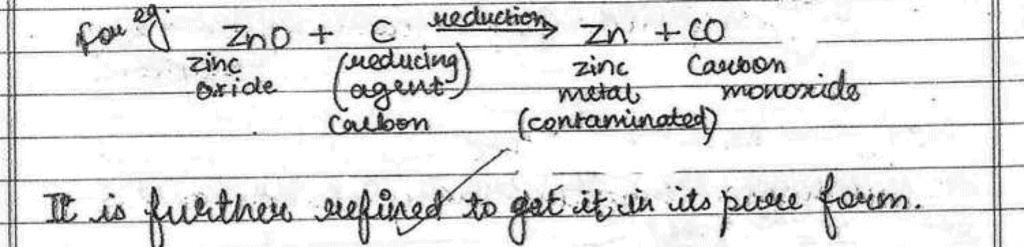 For eg. ZnO + C reduction→ Zn + CO
zinc (reducing zinc Carbon
oxide agent) metal monoxide
Carbon (contaminated)
It is further refined to get it in its pure form.